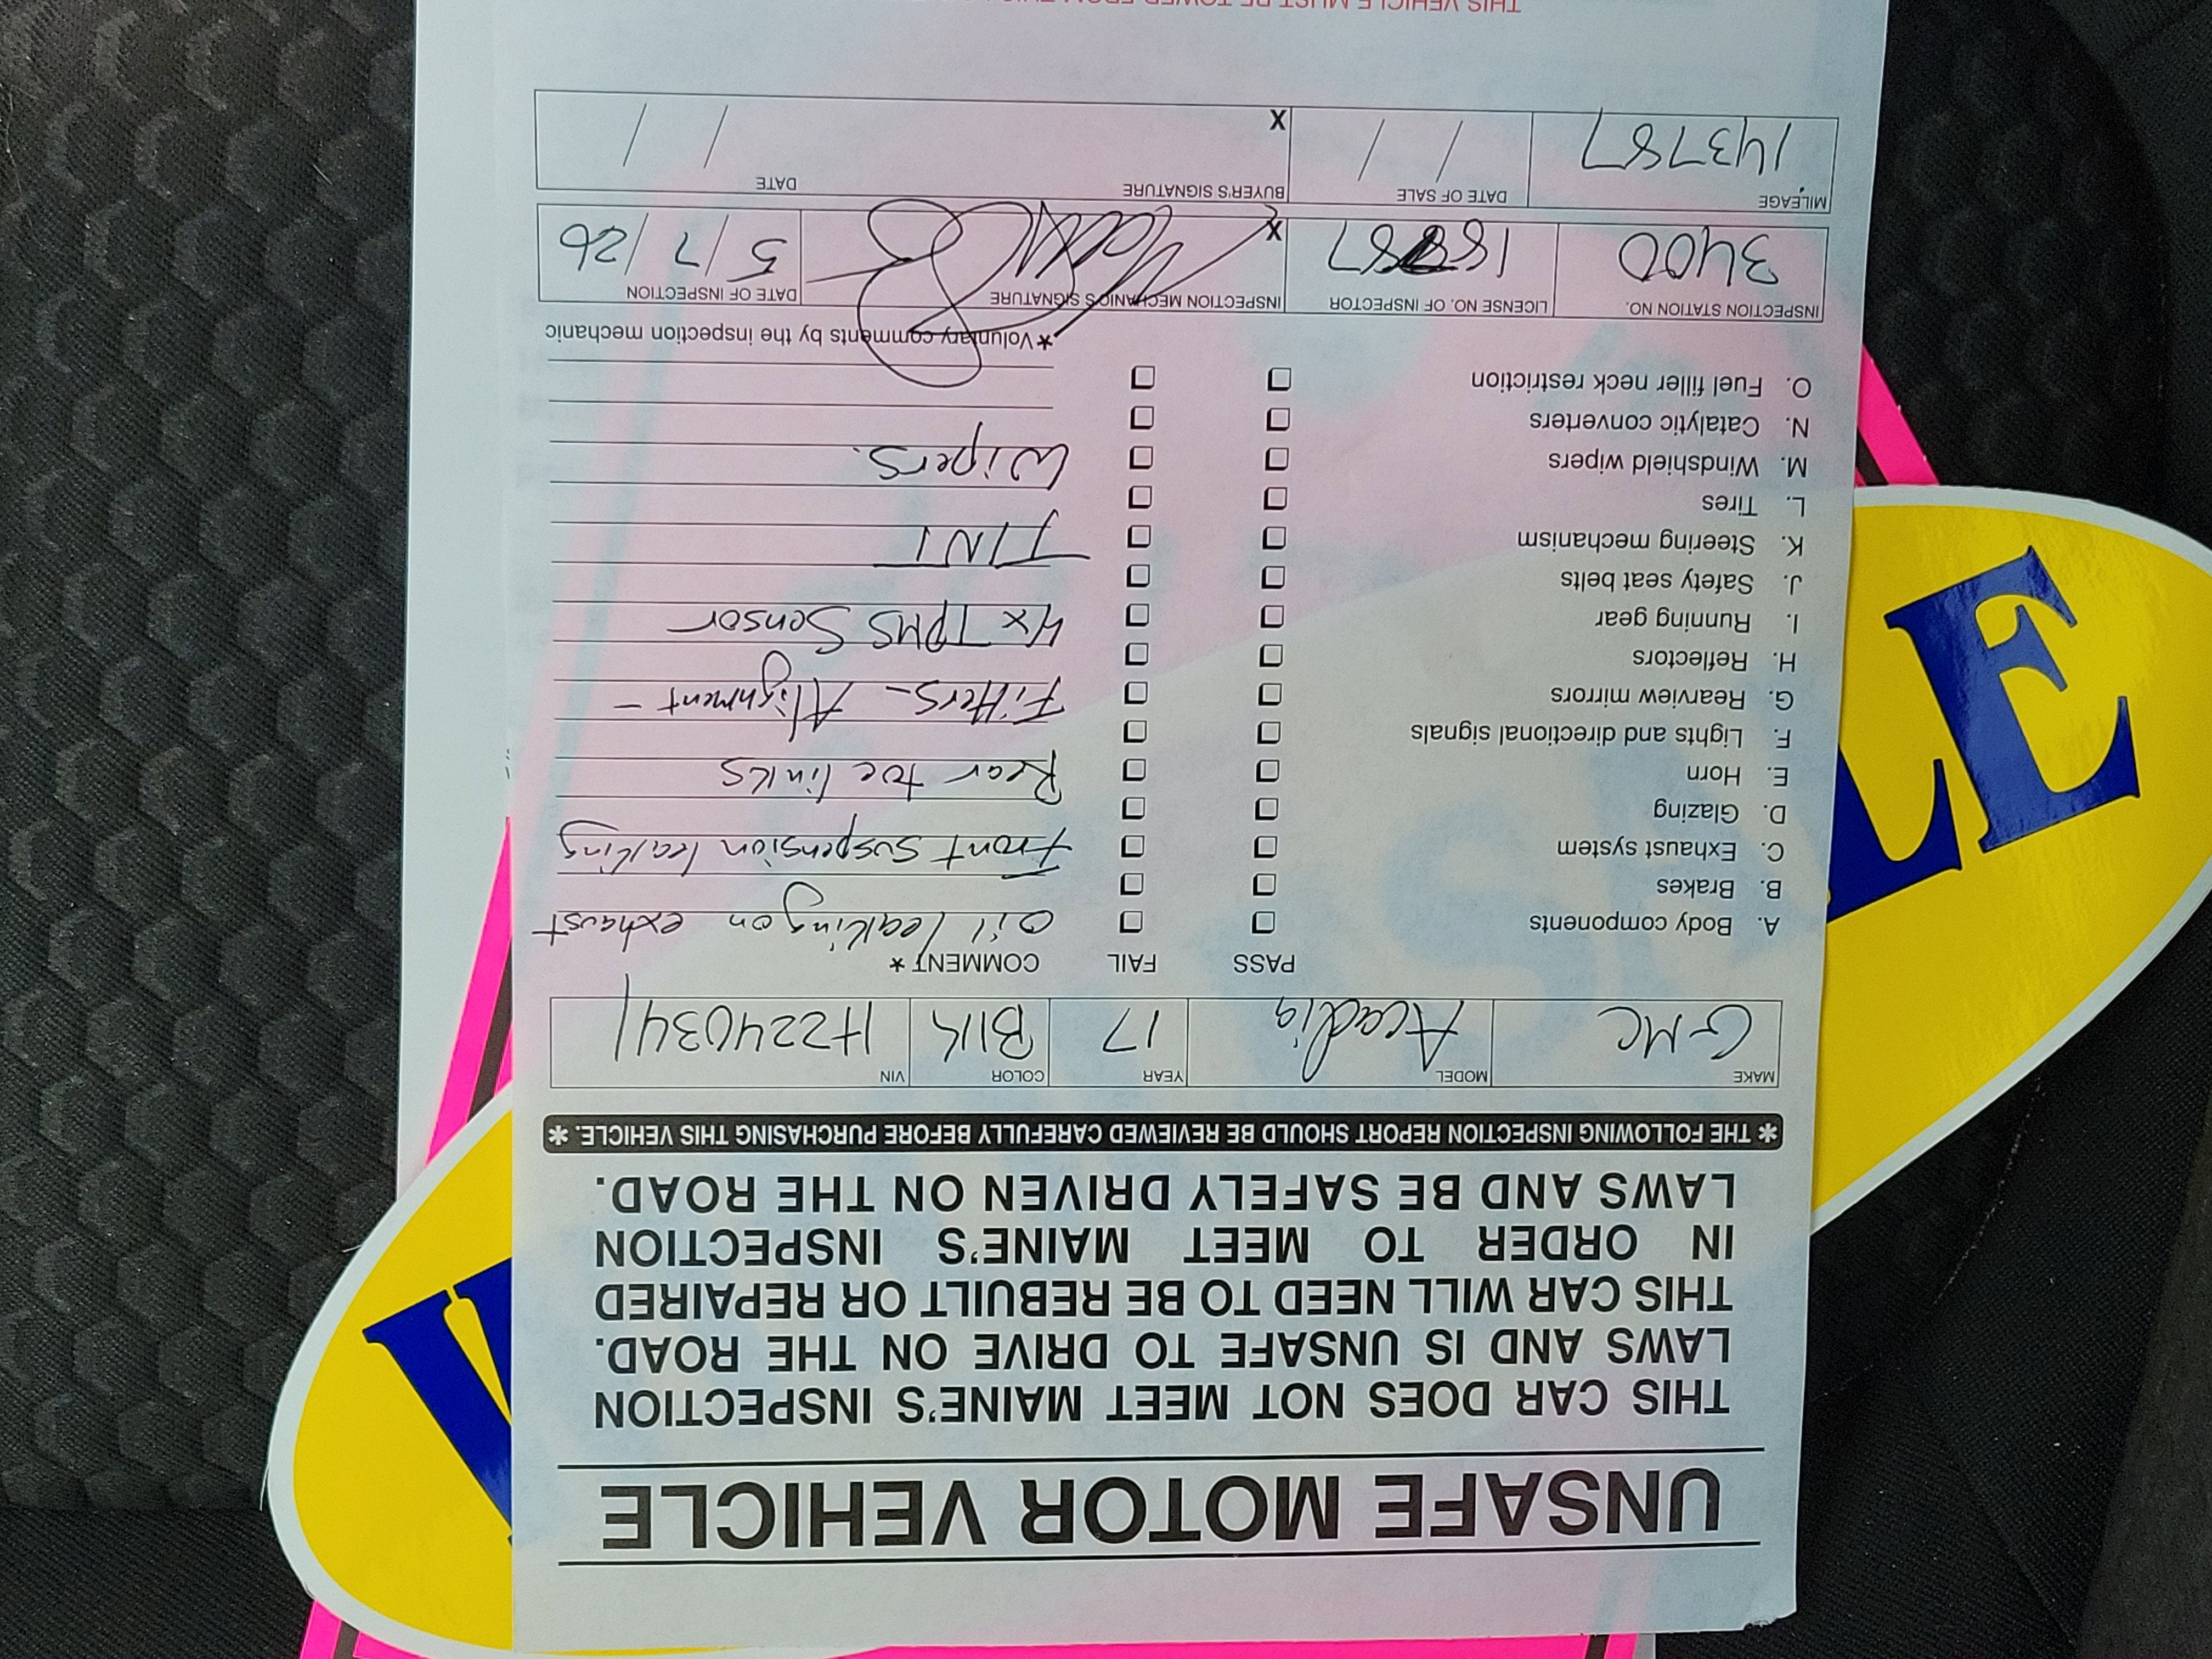 UNSAFE MOTOR VEHICLE
THIS CAR DOES NOT MEET MAINE'S INSPECTION
LAWS AND IS UNSAFE TO DRIVE ON THE ROAD.
THIS CAR WILL NEED TO BE REBUILT OR REPAIRED
IN ORDER TO MEET MAINE'S INSPECTION
LAWS AND BE SAFELY DRIVEN ON THE ROAD.
* THE FOLLOWING INSPECTION REPORT SHOULD BE REVIEWED CAREFULLY BEFORE PURCHASING THIS VEHICLE. *
MAKE MODEL YEAR COLOR VIN
GMC Acadia 17 Blk H224034
PASS FAIL COMMENT *
A. Body components oil leaking on exhaust
B. Brakes
C. Exhaust system Front suspension leaking
D. Glazing
E. Horn Rear toe links
F. Lights and directional signals
G. Rearview mirrors Filters - Alignment -
H. Reflectors
I. Running gear 4x TPMS Sensor
J. Safety seat belts
K. Steering mechanism TINT
L. Tires
M. Windshield wipers Wipers.
N. Catalytic converters
O. Fuel filler neck restriction
*Voluntary comments by the inspection mechanic
INSPECTION STATION NO. LICENSE NO. OF INSPECTOR INSPECTION MECHANIC'S SIGNATURE DATE OF INSPECTION
3400 X 5/7/26
MILEAGE DATE OF SALE BUYER'S SIGNATURE DATE
143787 / / X / /
THIS VEHICLE MUST BE TOWED FROM THIS
LE